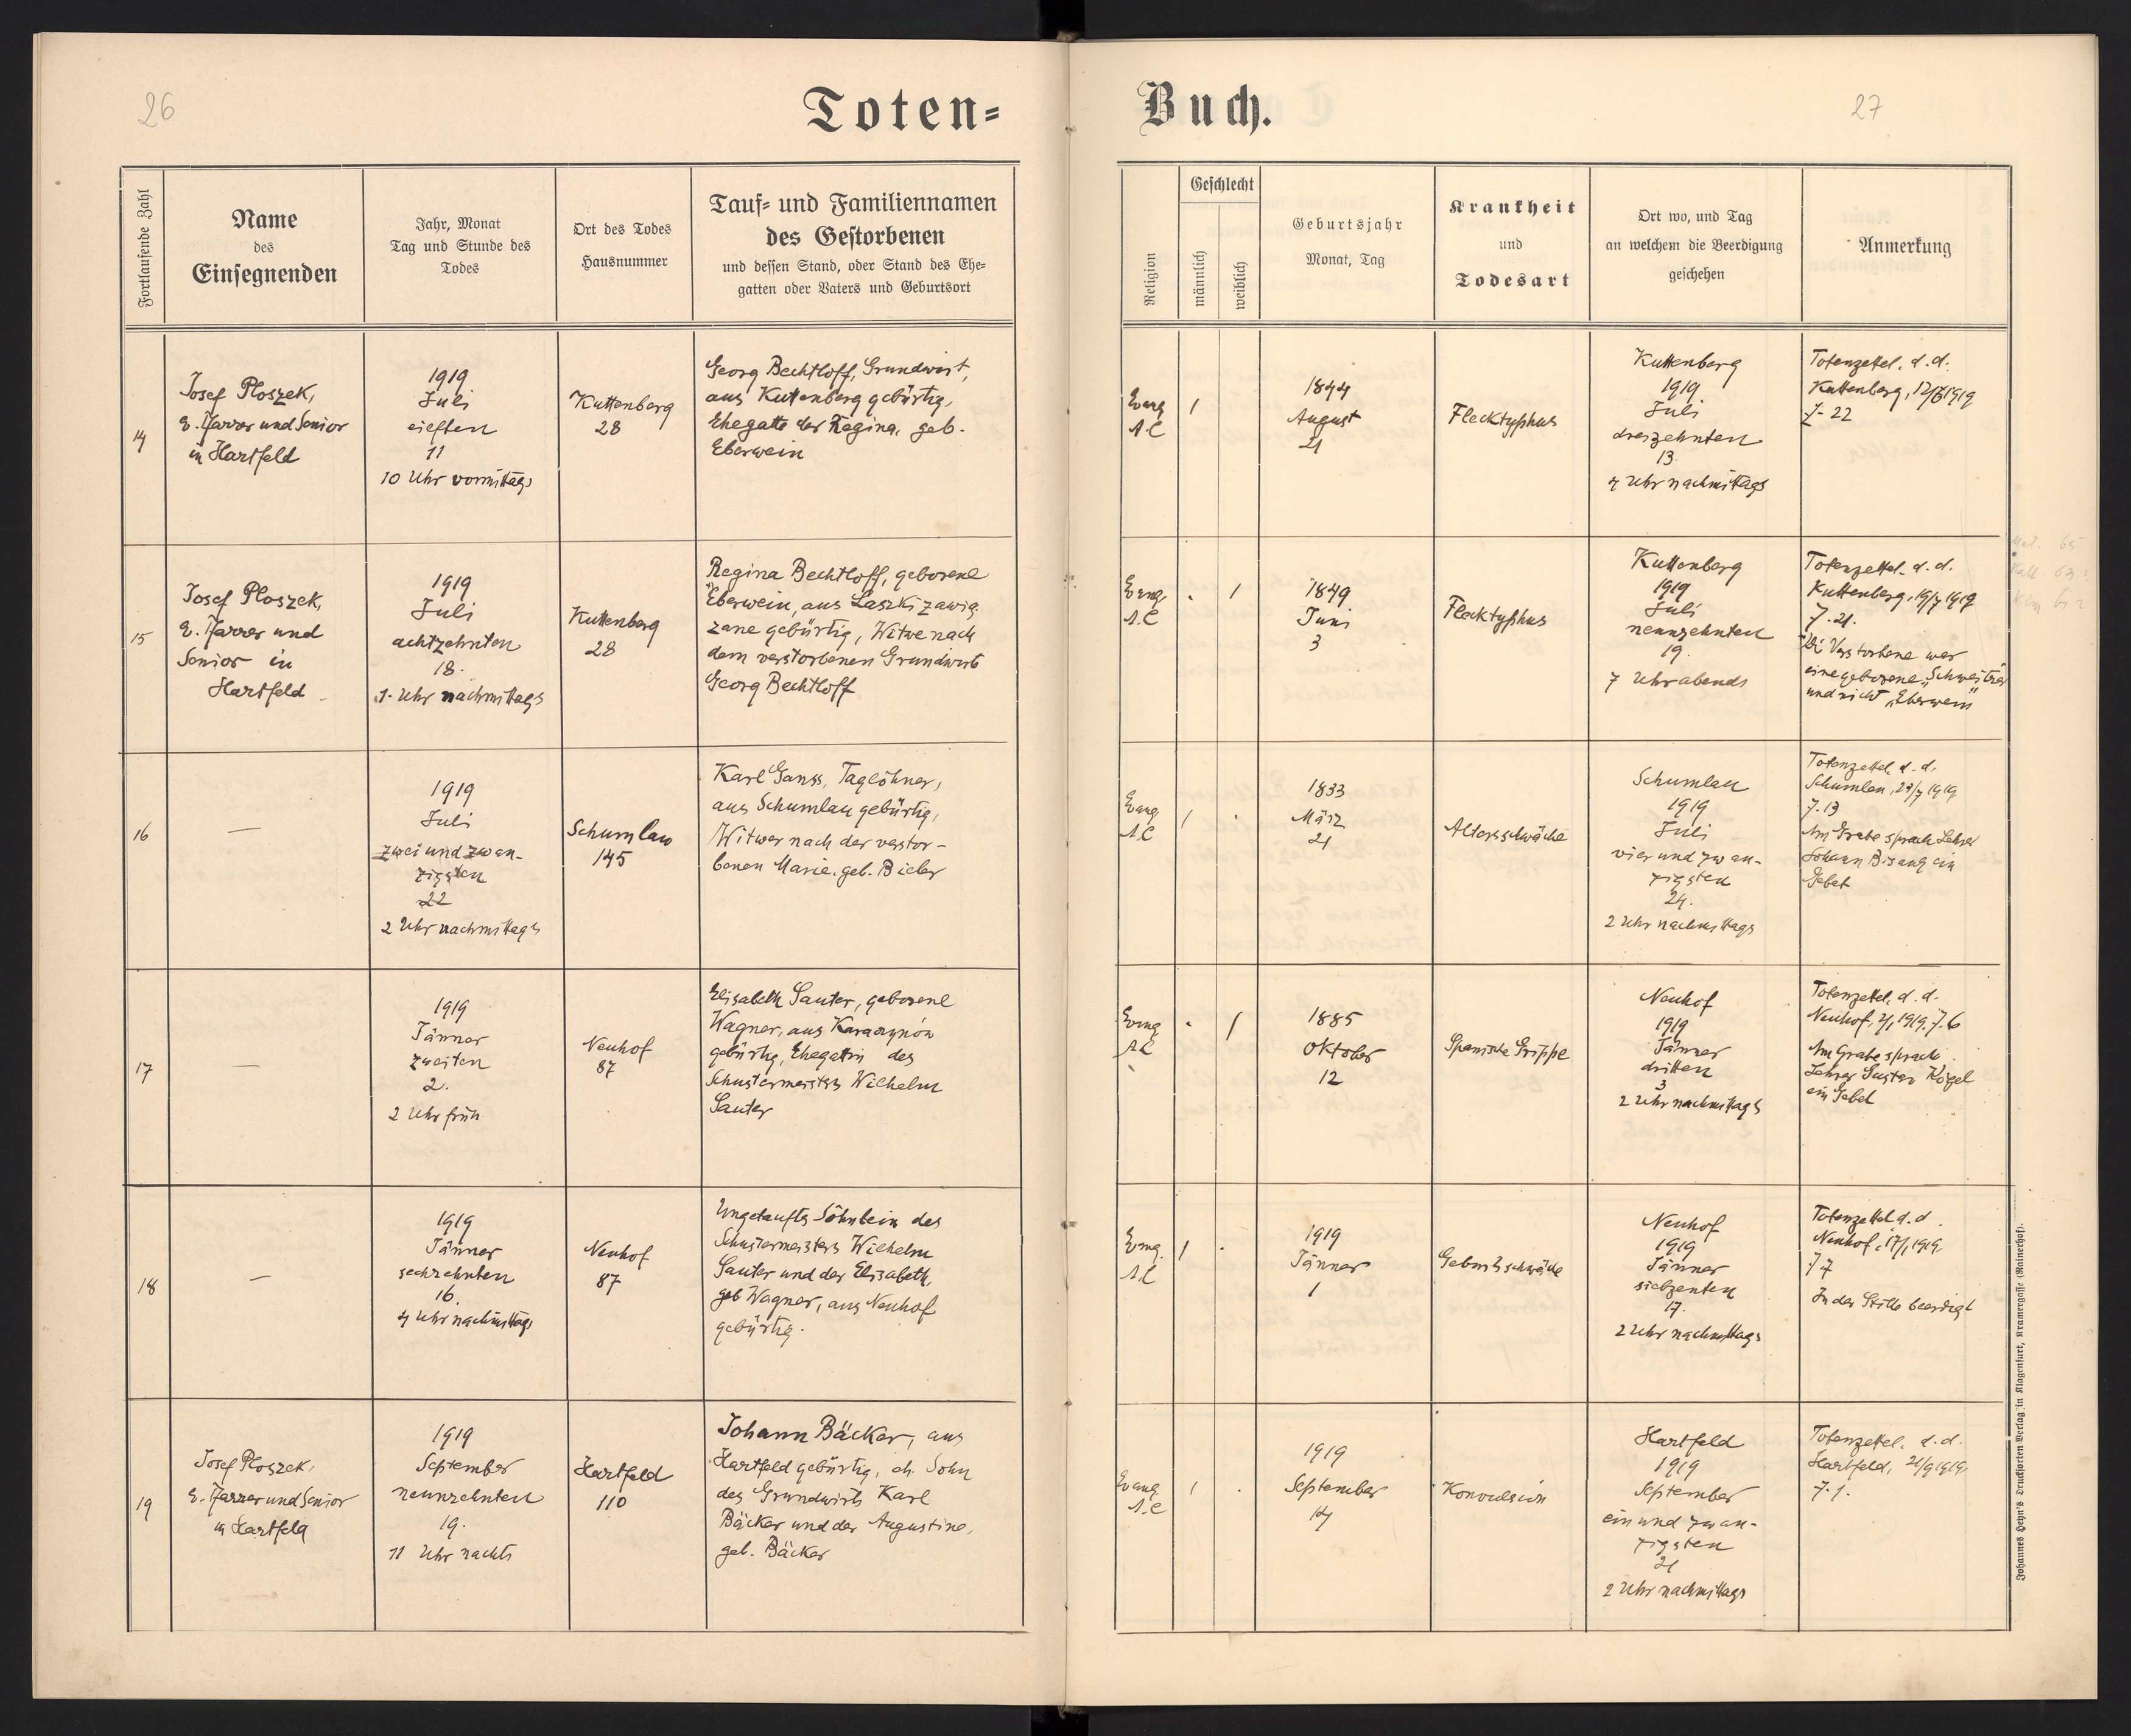 26
Toten=
Fortlaufende Zahl
Name
des
Einsegnenden
Jahr, Monat
Tag und Stunde des
Todes
Ort des Todes
Hausnummer
Tauf= und Familiennamen
des Gestorbenen
und dessen Stand, oder Stand des Ehe=
gatten oder Vaters und Geburtsort
14
Josef Ploszek,
e. Pfarrer und Senior
in Hartfeld
1919
Juli
elften
11
10 Uhr vormittags
Kuttenberg
28
Georg Bechtloff, Grundwirt,
aus Kuttenberg gebürtig,
Ehegatte der Regina, geb.
Eberwein
15
Josef Ploszek,
e. Pfarrer und
Senior in
Hartfeld
1919
Juli
achtzehnten
18.
1. Uhr nachmittags
Kuttenberg
28
Regina Bechtloff, geborene
Eberwein, aus Laszki zawią
zane gebürtig, Witwe nach
dem verstorbenen Grundwirts
Georg Bechtloff
16
—
1919
Juli
zwei und zwan-
zigsten
22
2 Uhr nachmittags
Schumlau
145
Karl Ganss, Taglöhner,
aus Schumlau gebürtig,
Witwer nach der verstor-
benen Marie. geb. Bieler
17
—
1919
Jänner
zweiten
2.
2 Uhr früh
Neuhof
87
Elisabeth Sauter, geborene
Wagner, aus
gebürtig, Ehegattin des
Schustermeisters Wilhelm
Sauter
18
—
1919
Jänner
sechzehnten
16.
4 Uhr nachmittags
Neuhof
87
Ungetauftes Söhnlein des
Schustermeisters Wilhelm
Sauter und der Elisabeth,
geb Wagner, aus Neuhof
gebürtig.
19
Josef Ploszek,
e. Pfarrer und Senior
in Hartfeld
1919
September
neunzehnten
19.
11 Uhr nachts
Hartfeld
110
Johann Bäcker, aus
Hartfeld gebürtig, eh. Sohn
des Grundwirts Karl
Bäcker und der Augustine,
geb. Bäcker
Buch.
27
Religion
Geschlecht
männlich
weiblich
Geburtsjahr
Monat, Tag
Krankheit
und
Todesart
Ort wo, und Tag
an welchem die Beerdigung
geschehen
Anmerkung
Evang
A.C
1
1844
August
21
Flecktyphus
Kuttenberg
1919
Juli
dreizehnten
13.
4 Uhr nachmittags
Totenzettel. d. d.
Kuttenberg, 1919
Z- 22
Evang.
A.C
.
1
1849
Juni
3
Flecktyphus
Kuttenberg
1919
Juli
neunzehnten
19.
7 Uhr abends
Totenzettel. d. d.
Kuttenberg, 19/7 1919
Z. 21.
Die Verstorbene war
eine geborene „Schweitzer"
und nicht „Eberwein"
Evang
A.C
1
.
1833
März
21
Altersschwäche
Schumlau
1919
Juli
vier und zwan-
zigsten
24.
2 Uhr nachmittags
Totenzettel, d. d.
Schumlau, 1919
Z. 13
Am Grabe sprach Lehrer
Johann Bisanz ein
Gebet
Evang
A.C
.
1
1885
Oktober
12
Spanische Grippe
Neuhof
1919
Jänner
dritten
3
2 Uhr nachmittags
Totenzettel, d. d.
Neuhof, 2/1 1919, Z. 6
Am Grabe sprach
Lehrer Gustav Kögel
ein Gebet
Evang.
A.C
1
.
1919
Jänner
1
Geburtsschwäche
Neuhof
1919
Jänner
siebzenten
17.
2 Uhr nachmittags
Totenzettel, d. d.
Neuhof, 17/1 1919
Z 7
In der Stille beerdigt
Evang.
A.C
1
.
1919
September
14
Konvulsion
Hartfeld
1919
September
ein und zwan-
zigsten
21
2 Uhr nachmittags
Totenzettel. d. d.
Hartfeld, 21/9 1919
Z. 1.
Johannes Heyn's Drucksorten Verlag in Klagenfurt, Kramergasse (Rainerhof).